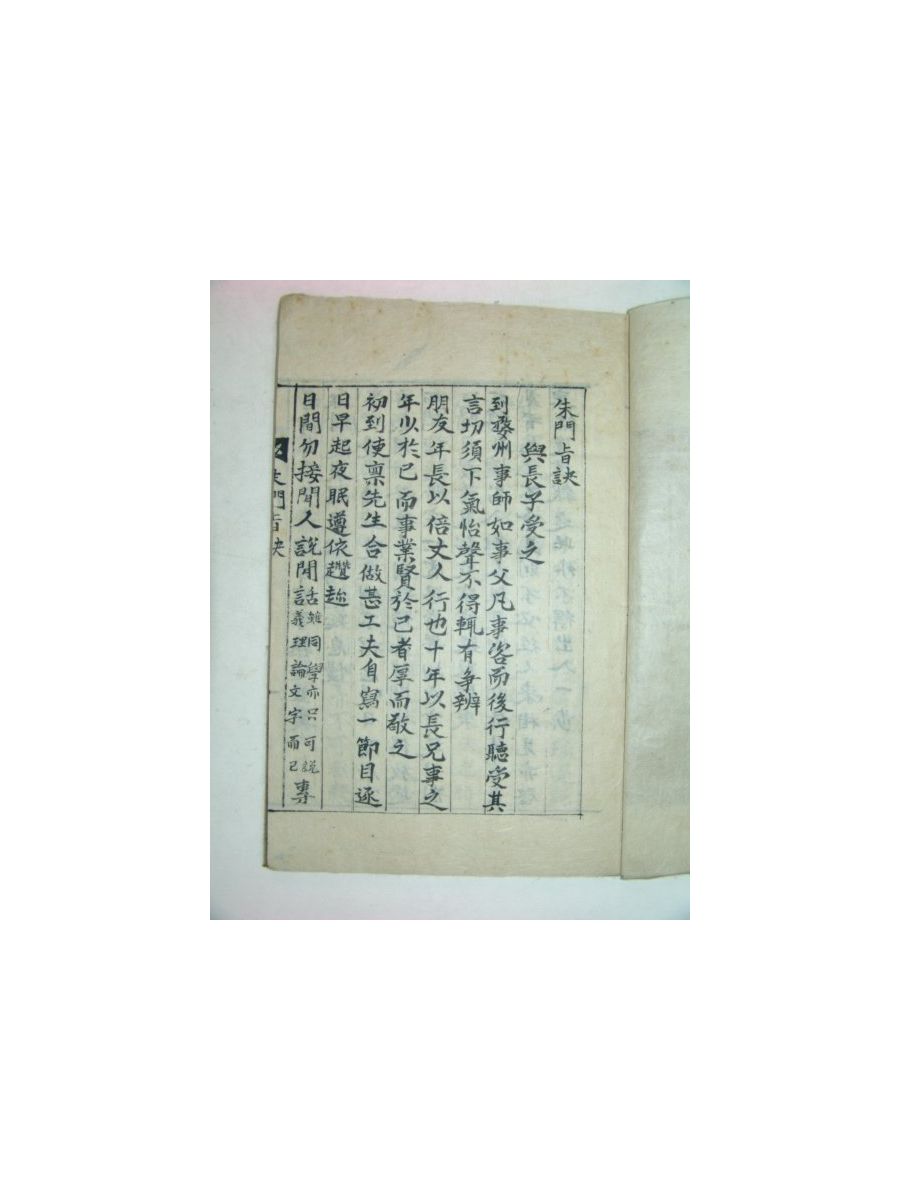 朱門旨訣
與長子受之
到婺州事師如事父凡事咨而後行聽受其
言切須下氣怡聲不得輒有爭辨
朋友年長以倍丈人行也十年以長兄事之
年少於己而事業賢於己者厚而敬之
初到便禀先生合做甚工夫自寫一節目逐
日早起夜眠遵依趲趂
日間勿接閒人說閒話雖同學亦只可說義理論文字而已專
門旨訣